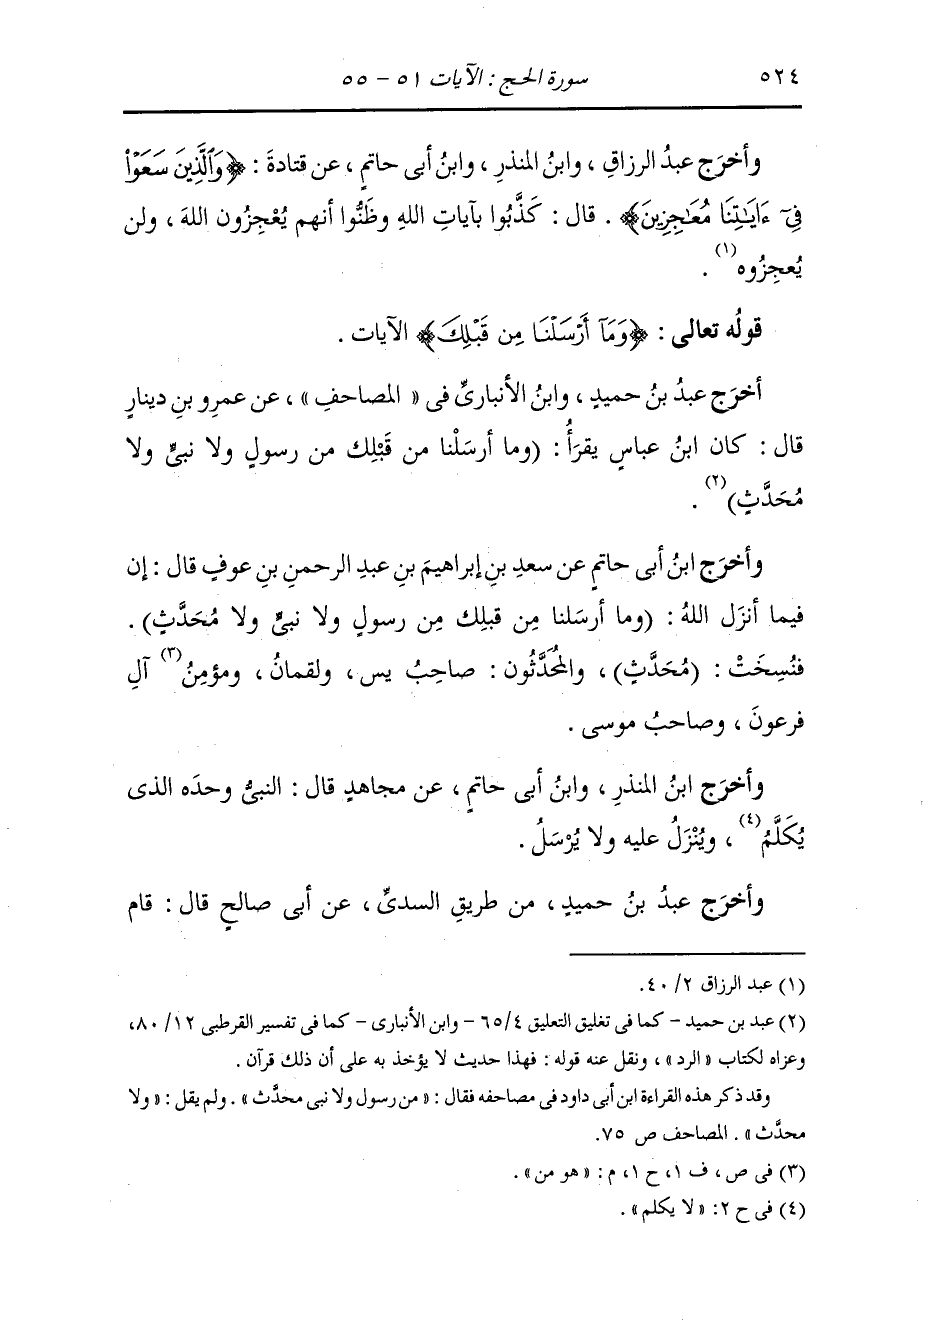 ٥٢٤ سورة الحج : الآيات ٥١ – ٥٥
وأخرَج عبدُ الرزاقِ ، وابنُ المنذرِ ، وابنُ أبى حاتمٍ ، عن قتادةَ : ﴿وَٱلَّذِينَ سَعَوْا۟
فِىٓ ءَايَـٰتِنَا مُعَـٰجِزِينَ﴾ . قال : كَذَّبُوا بآياتِ اللهِ وظَنُّوا أنهم يُعْجِزُون اللهَ ، ولن
يُعجِزُوه(١) .
قولُه تعالى : ﴿وَمَآ أَرْسَلْنَا مِن قَبْلِكَ﴾ الآيات .
أخرَج عبدُ بنُ حميدٍ ، وابنُ الأنبارىِّ فى « المصاحفِ » ، عن عمرِو بنِ دينارٍ
قال : كان ابنُ عباسٍ يقرَأُ : (وما أرسَلْنا من قَبْلِك من رسولٍ ولا نبىٍّ ولا
مُحَدَّثٍ)(٢) .
وأخرَج ابنُ أبى حاتمٍ عن سعدِ بنِ إبراهيمَ بنِ عبدِ الرحمنِ بنِ عوفٍ قال : إن
فيما أنزَل اللهُ : (وما أرسَلنا مِن قبلِك مِن رسولٍ ولا نبىٍّ ولا مُحَدَّثٍ) .
فنُسِخَتْ : (مُحَدَّثٍ) ، والمُحَدَّثُون : صاحبُ يس ، ولقمانُ ، ومؤمِنُ(٣) آلِ
فرعونَ ، وصاحبُ موسى .
وأخرَج ابنُ المنذرِ ، وابنُ أبى حاتمٍ ، عن مجاهدٍ قال : النبىُّ وحدَه الذى
يُكَلَّمُ(٤) ، ويُنْزَلُ عليه ولا يُرْسَلُ .
وأخرَج عبدُ بنُ حميدٍ ، من طريقِ السدىِّ ، عن أبى صالحٍ قال : قام
(١) عبد الرزاق ٢/ ٤٠.
(٢) عبد بن حميد – كما فى تغليق التعليق ٦٥/٤ – وابن الأنبارى – كما فى تفسير القرطبى ١٢/ ٨٠،
وعزاه لكتاب « الرد » ، ونقل عنه قوله : فهذا حديث لا يؤخذ به على أن ذلك قرآن .
وقد ذكر هذه القراءة ابن أبى داود فى مصاحفه فقال : « من رسول ولا نبى محدَّث » . ولم يقل : « ولا
محدَّث » . المصاحف ص ٧٥.
(٣) فى ص ، ف ١، ح ١، م : « هو من » .
(٤) فى ح ٢: « لا يكلم » .